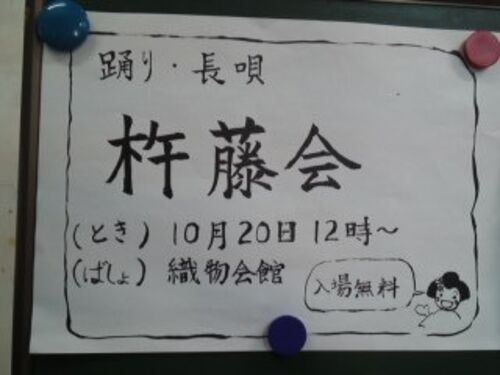 踊り・長唄
杵藤会
(とき) 10月20日 12時～
(ばしょ) 織物会館
入場無料